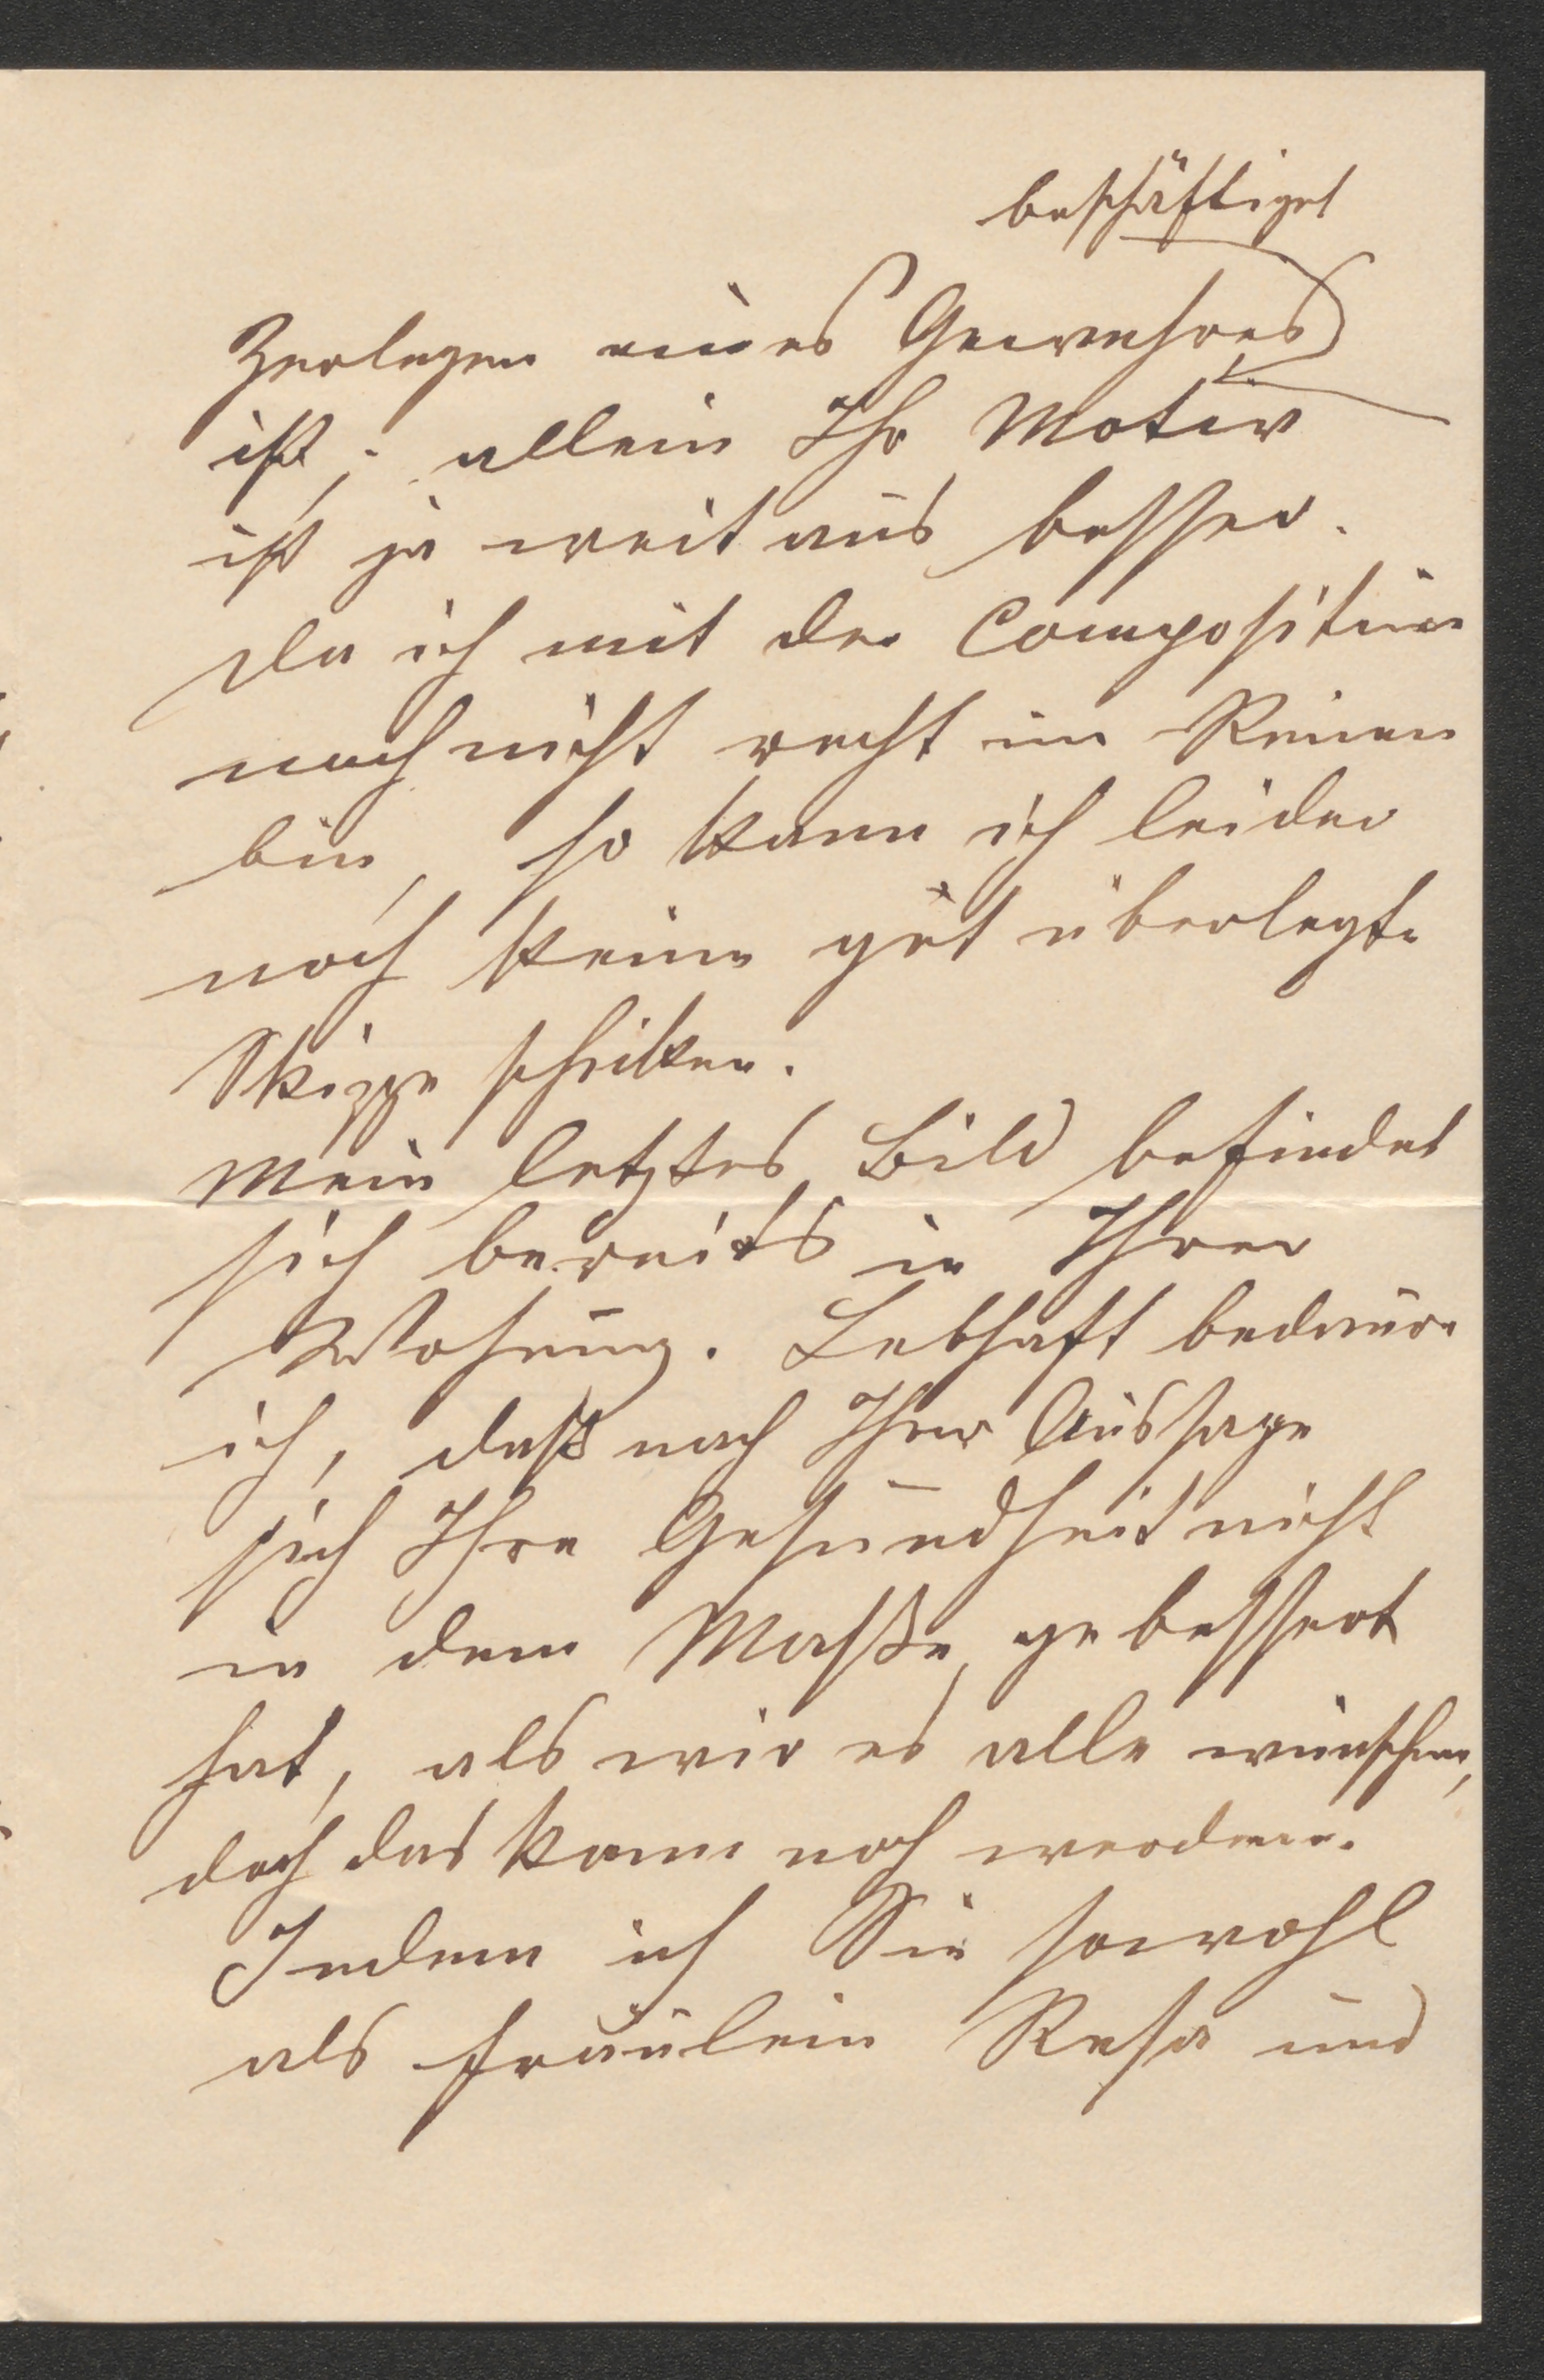 beschäftiget
Zerlegen eines Gewehres
ist; allein Ihr Motiv
ist ja weit aus besser.
Da ich mit der Composition
noch nicht recht im Reinen
bin, so kann ich leider
noch keine gut überlegte
Skizze schicken.
Mein letztes Bild befindet
sich bereits in Ihrer
Wohnung. Lebhaft bedaure
ich, daß nach Ihrer Aussage
sich Ihre Gesundheit nicht
in dem Maße gebessert
hat, als wir es alle wünschen,
doch das kann noch werden.
Indem ich Sie sowohl
als Fräulein Resa und